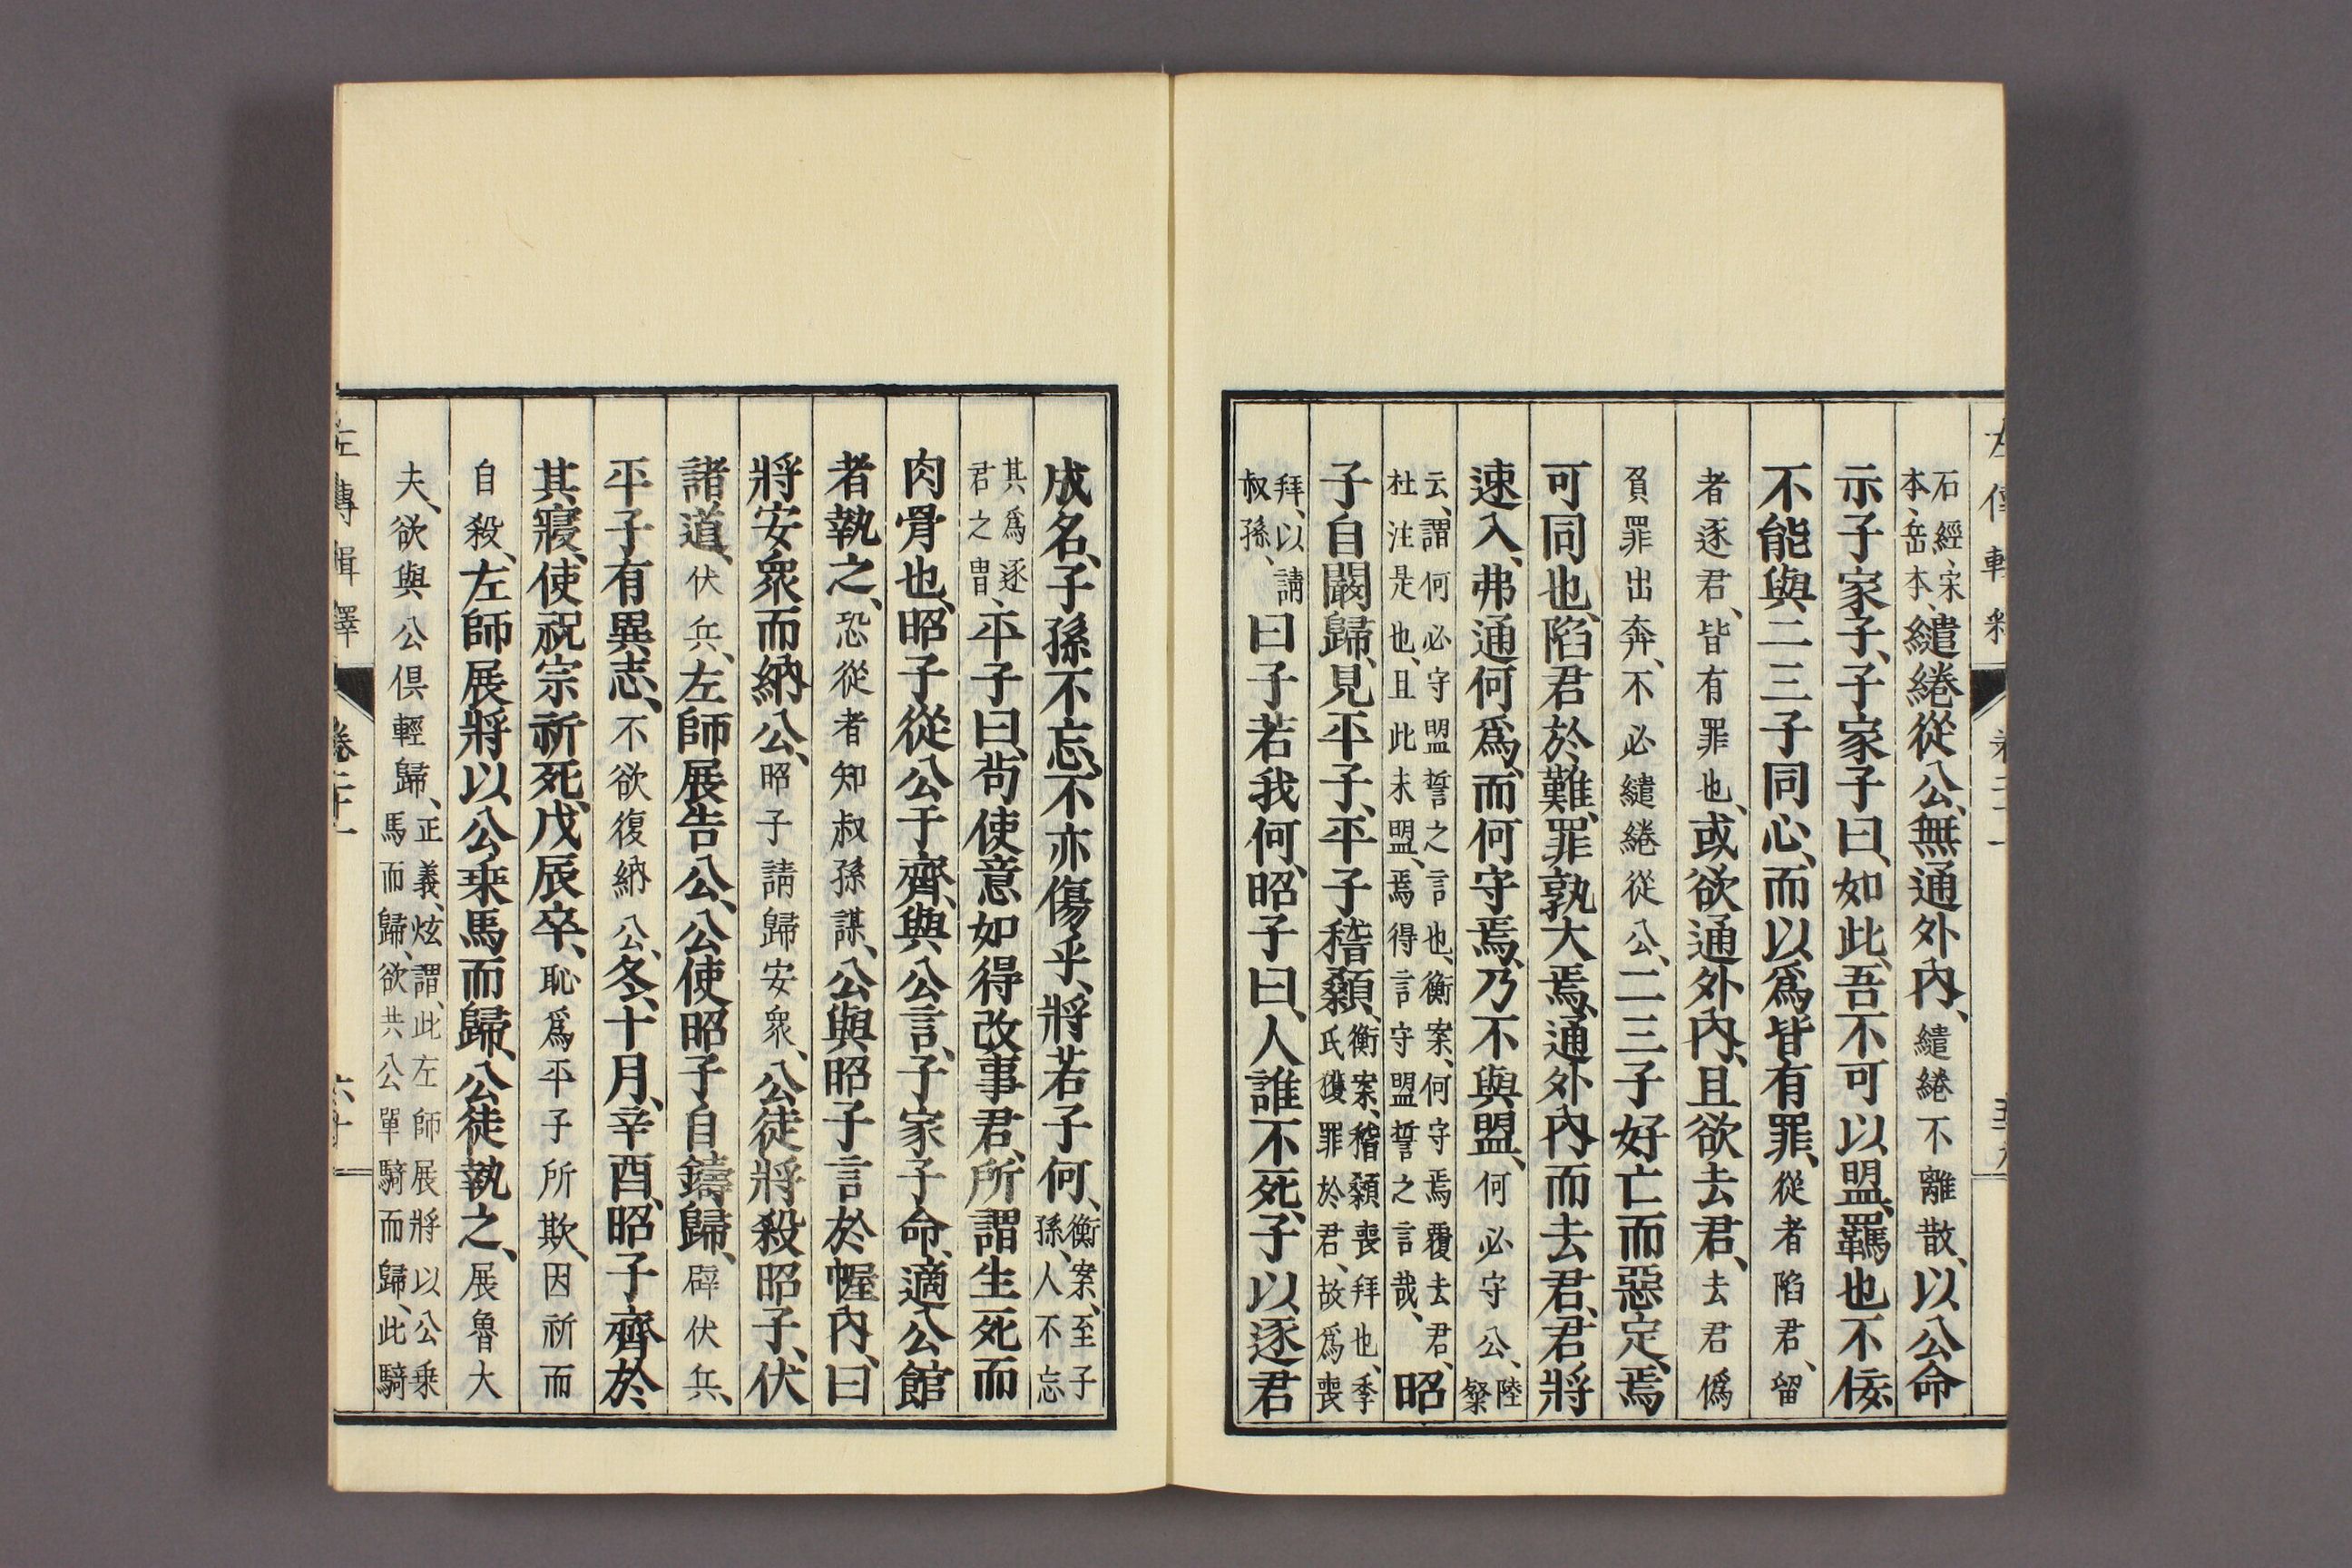 石經、宋本、岳本、繾綣從公、無通外內、繾綣不離散、以公命
示子家子、子家子曰、如此、吾不可以盟、羈也不佞、
不能與二三子同心、而以爲皆有罪、從者陷君、留
者逐君、皆有罪也、或欲通外內、且欲去君、去君僞
負罪出奔、不必繾綣從公、二三子好亡而惡定、焉
可同也、陷君於難、罪孰大焉、通外內而去君、君將
速入、弗通何爲、而何守焉、乃不與盟、何必守公、陸粲
云、謂何必守盟誓之言也、衡案、何守焉覆去君、杜注是也、且此未盟、焉得言守盟誓之言哉、昭
子自闞歸、見平子、平子稽顙、衡案、稽顙喪拜也、季氏獲罪於君、故爲喪
拜、以請叔孫、曰子若我何、昭子曰、人誰不死、子以逐君
成名、子孫不忘、不亦傷乎、將若子何、衡案、至子孫、人不忘
其爲逐君之冑、平子曰、苟使意如得改事君、所謂生死而
肉骨也、昭子從公于齊、與公言、子家子命、適公館
者執之、恐從者知叔孫謀、公與昭子言於幄內、曰
將安衆而納公、昭子請歸安衆、公徒將殺昭子、伏
諸道、伏兵、左師展告公、公使昭子自鑄歸、辟伏兵、
平子有異志、不欲復納公、冬、十月、辛酉、昭子齊於
其寢、使祝宗祈死、戊辰卒、恥爲平子所欺、因祈而
自殺、左師展將以公乘馬而歸、公徒執之、展魯大
夫、欲與公俱輕歸、正義、炫謂、此左師展將以公乘馬而歸、欲共公單騎而歸、此騎
左傳輯釋 卷二十一 六十